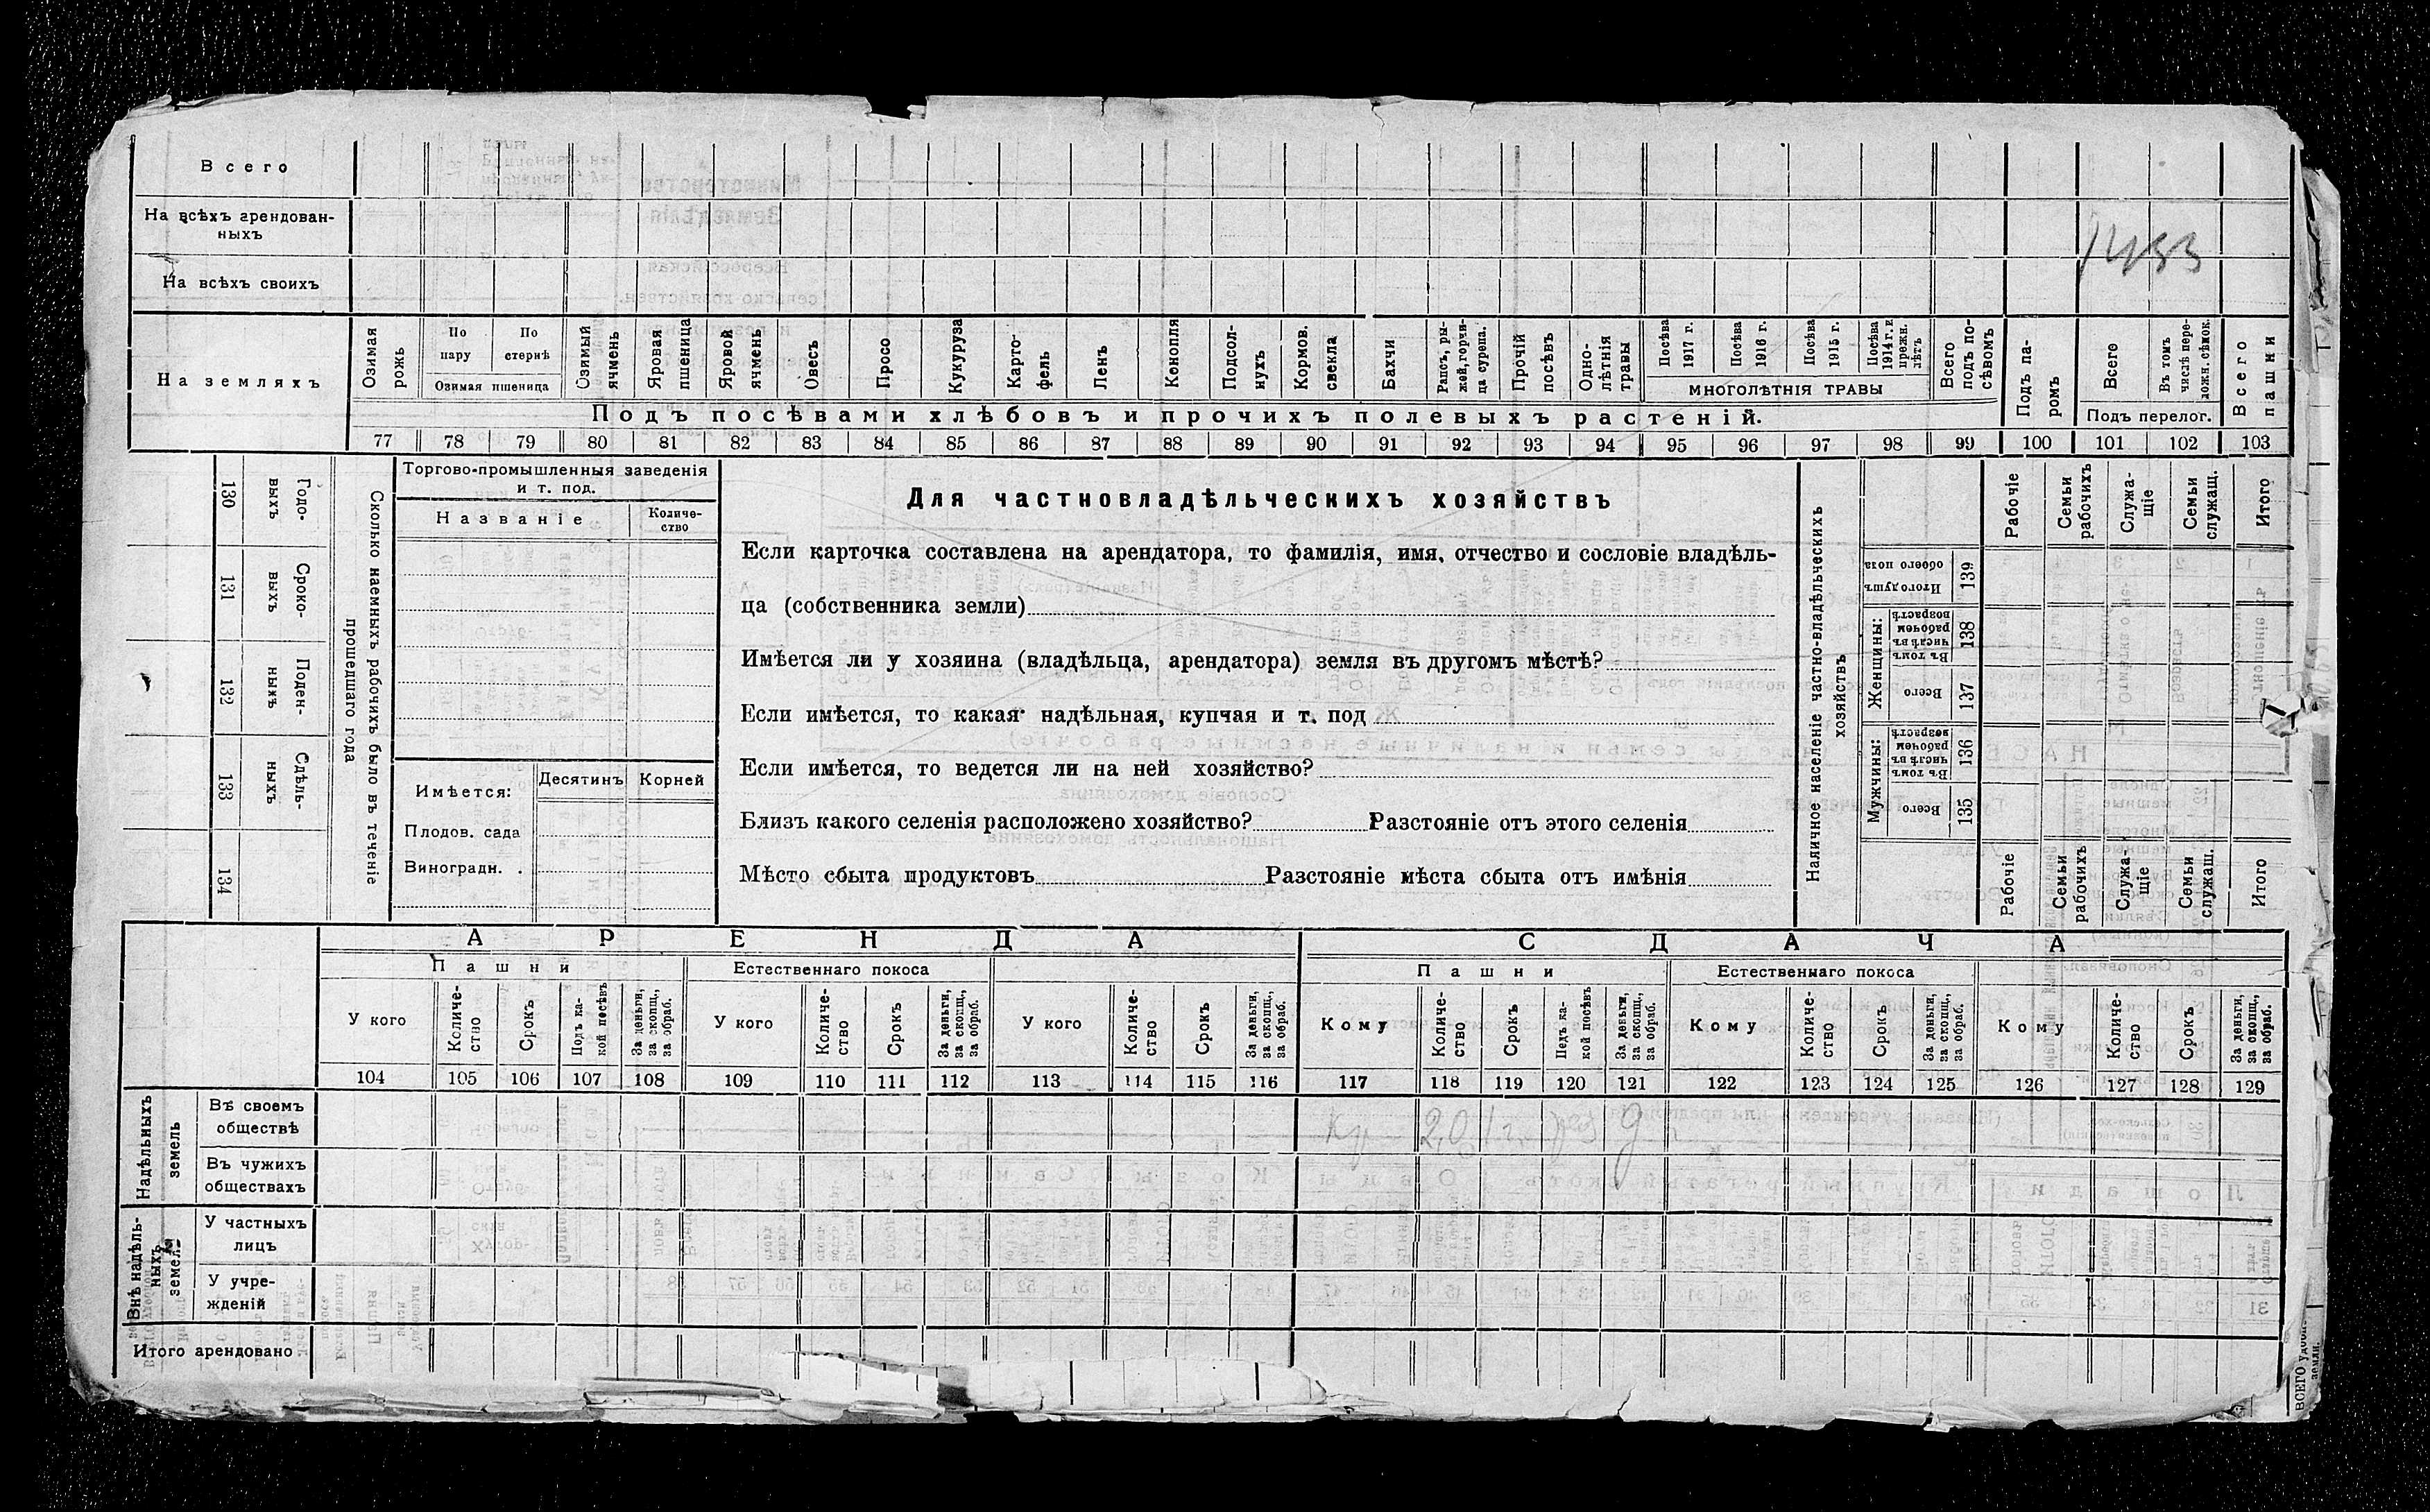 Всего
На всѣхъ арендован-
ныхъ
1433
На всѣхъ своихъ
На земляхъ
Озимая рожь
По пару
По стернѣ
Озимая пшеница
Озимый ячмень
Яровая пшеница
Яровой ячмень
Овесъ
Просо
Кукуруза
Карто-
фель
Ленъ
Конопля
Подсол-
нухъ
Кормов. свекла
Бахчи
Рапсъ, ры-
жей, горчи-
ца сурепа.
Прочій посѣвъ
Одно-
лѣтнія травы
Посѣва 1917 г.
Посѣва 1916 г.
Посѣва 1915 г.
Посѣва 1914 г. и прежн. лѣтъ
МНОГОЛѢТНІЯ ТРАВЫ
Всего подъ по-
сѣвомъ
Подъ па-
ромъ
Всего
Въ томъ числѣ пере-
ложн. сѣнок.
Подъ перелог.
Всего пашни
Подъ посѣвами хлѣбовъ и прочихъ полевыхъ растеній.
77 78 79 80 81 82 83 84 85 86 87 88 89 90 91 92 93 94 95 96 97 98 99 100 101 102 103
130 Годо-
выхъ
131 Сроко-
выхъ
132 Поден-
ныхъ
133 Сдѣль-
ныхъ
134
Сколько наемныхъ рабочихъ было въ теченіе
прошедшаго года
Торгово-промышленныя заведенія
и т. под.
Названіе
Количе-
ство
Имѣется:
Десятинъ
Корней
Плодов. сада
Виноградн. .
Для частновладѣльческихъ хозяйствъ
Если карточка составлена на арендатора, то фамилія, имя, отчество и сословіе владѣль-
ца (собственника земли)
Имѣется ли у хозяина (владѣльца, арендатора) земля въ другомъ мѣстѣ?
Если имѣется, то какая надѣльная, купчая и т. под
Если имѣется, то ведется ли на ней хозяйство?
Близъ какого селенія расположено хозяйство? Разстояніе отъ этого селенія
Мѣсто сбыта продуктовъ Разстояніе мѣста сбыта отъ имѣнія
Наличное населеніе частно-владѣльческихъ
хозяйствъ
Рабочіе
Семьи рабочихъ
Служа-
щіе
Семьи служащ.
Итого
Итого душъ обоего пола 139
Женщины:
Въ томъ числѣ въ рабочем возрастѣ 138
Всего 137
Мужчины:
Въ томъ числѣ въ рабочем возрастѣ 136
Всего 135
Рабочіе
Семьи рабочихъ
Служа-
щіе
Семьи служащ.
Итого
АРЕНДА
СДАЧА
Пашни
Естественнаго покоса
Пашни
Естественнаго покоса
У кого
Количе-
ство
Срокъ
Подъ ка-
кой посѣвъ
За деньги, за скопщ., за обраб.
У кого
Количе-
ство
Срокъ
За деньги, за скопщ., за обраб.
У кого
Количе-
ство
Срокъ
За деньги, за скопщ., за обраб.
Кому
Количе-
ство
Срокъ
Подъ ка-
кой посѣвъ
За деньги, за скопщ., за обраб.
Кому
Количе-
ство
Срокъ
За деньги, за скопщ., за обраб.
Кому
Количе-
ство
Срокъ
За деньги, за скопщ., за обраб.
104 105 106 107 108 109 110 111 112 113 114 115 116 117 118 119 120 121 122 123 124 125 126 127 128 129
Надѣльныхъ земель
Въ своемъ
обществѣ
Въ чужихъ
обществахъ
Внѣ надѣль-
ныхъ земель
У частныхъ
лицъ
У учре-
жденій
Итого арендовано
ВСЕГО удобн. земли.